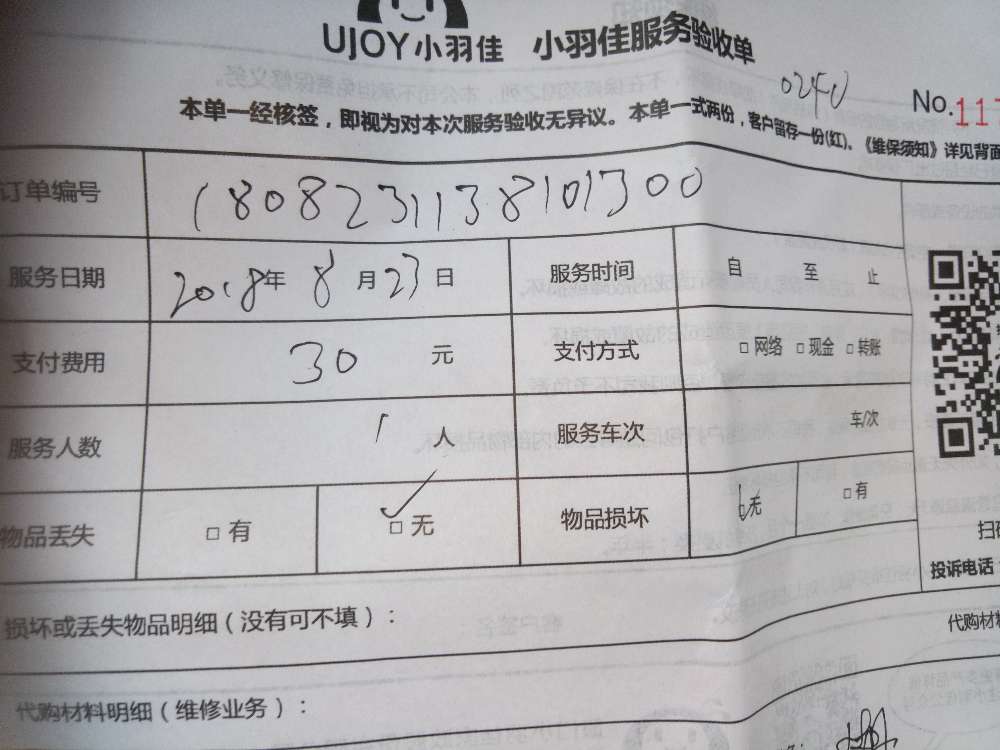 UJOY小羽佳 小羽佳服务验收单
0240
No.117
本单一经核签，即视为对本次服务验收无异议。本单一式两份，客户留存一份(红)、《维保须知》详见背面
订单编号 1808231138101300
服务日期 2018年 8月23日 服务时间 自 至 止
支付费用 30 元 支付方式 □网络 □现金 □转账
服务人数 1 人 服务车次 车/次
物品丢失 □有 □无 物品损坏 无 □有
扫
投诉电话
损坏或丢失物品明细（没有可不填）：
代购材
代购材料明细（维修业务）：